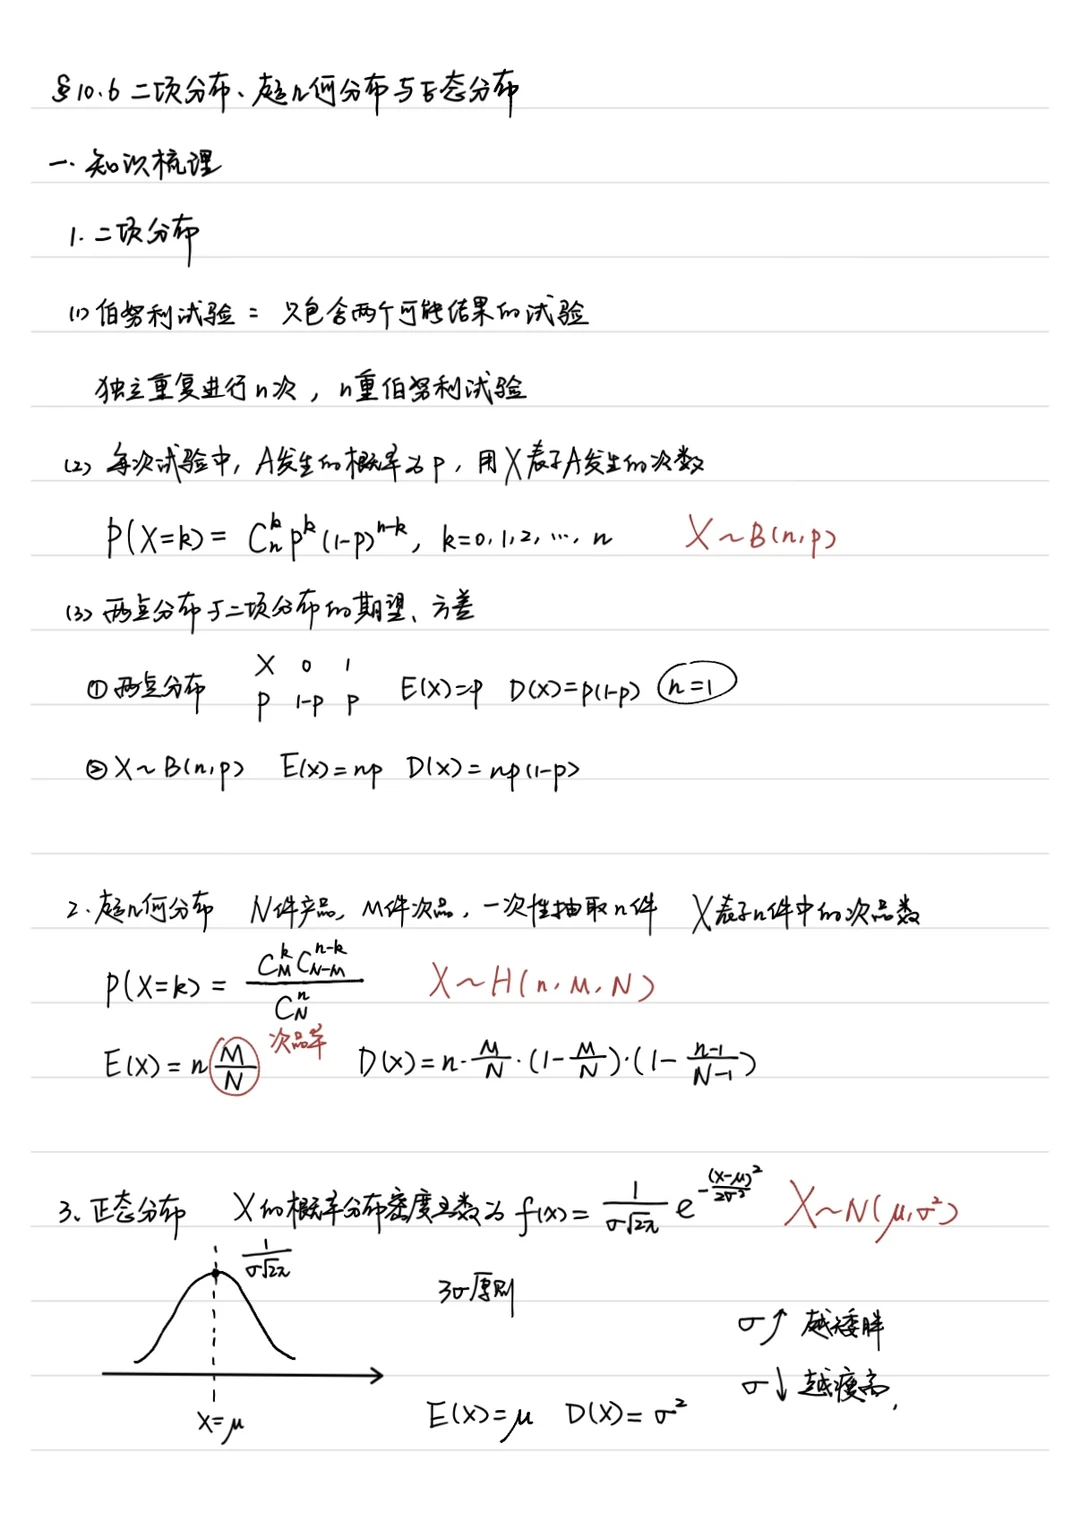 §10.6 二项分布、超几何分布与正态分布
一. 知识梳理
1. 二项分布
(1) 伯努利试验: 只包含两个可能结果的试验
独立重复进行n次, n重伯努利试验
(2) 每次试验中, A发生的概率为p, 用X表示A发生的次数
P(X=k) = C_n^k p^k (1-p)^{n-k}, k=0,1,2,…,n X~B(n,p)
(3) 两点分布与二项分布的期望、方差
① 两点分布 X 0 1
P 1-p p E(X)=p D(X)=p(1-p) n=1
② X~B(n,p) E(X)=np D(X)=np(1-p)
2. 超几何分布 N件产品, M件次品, 一次性抽取n件 X表示n件中的次品数
P(X=k) = \frac{C_M^k C_{N-M}^{n-k}}{C_N^n} X~H(n,M,N)
E(X)=n\frac{M}{N} 次品率 D(X)=n·\frac{M}{N}·(1-\frac{M}{N})·(1-\frac{n-1}{N-1})
3. 正态分布 X的概率分布密度函数为 f(x)=\frac{1}{σ\sqrt{2π}} e^{-\frac{(x-μ)^2}{2σ^2}} X~N(μ,σ²)
\frac{1}{σ\sqrt{2π}}
3σ原则
σ↑ 越矮胖
σ↓ 越瘦高,
E(X)=μ D(X)=σ²
X=μ